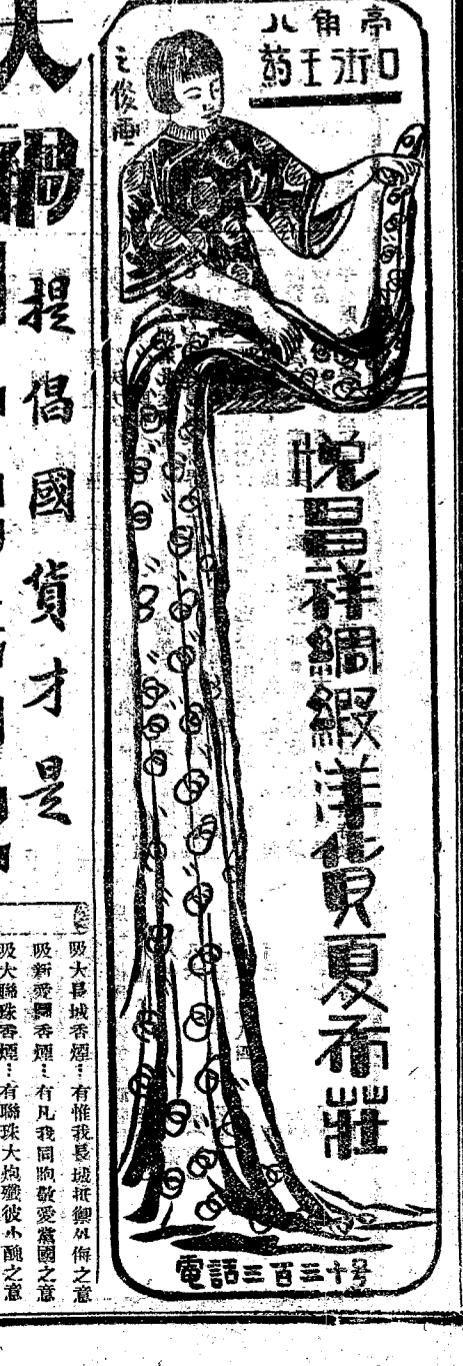 八角亭
药王街口
之俊画
悅昌祥綢緞洋貨夏布莊
電話三百三十号
提倡國貨才是
吸大長城香煙…有惟我長城抵禦外侮之意
吸新愛國香煙…有凡我同胞敬愛黨國之意
吸大聯珠香煙…有聯珠大炮殲彼小醜之意